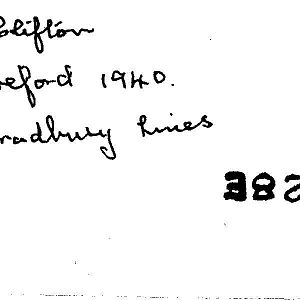 Clifton
reford 1940.
radbury Lines
382